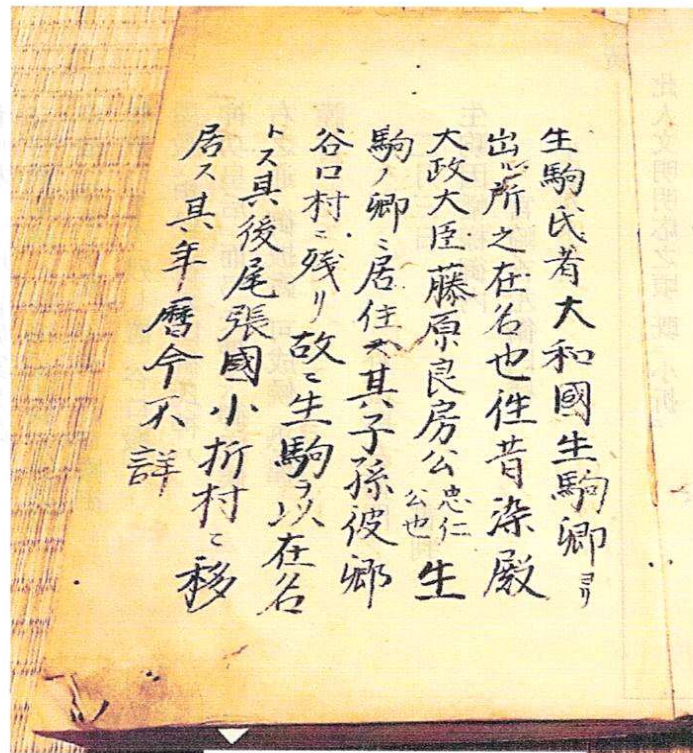 生駒氏者大和國生駒卿ヨリ
出ル所之在名也徃昔染殿
大政大臣藤原良房公忠仁公也生
駒ノ卿ニ居住ス其子孫彼卿
谷口村ニ残リ故ニ生駒ヲ以在名
トス其後尾張國小折村ニ移
居ス其年暦今不詳